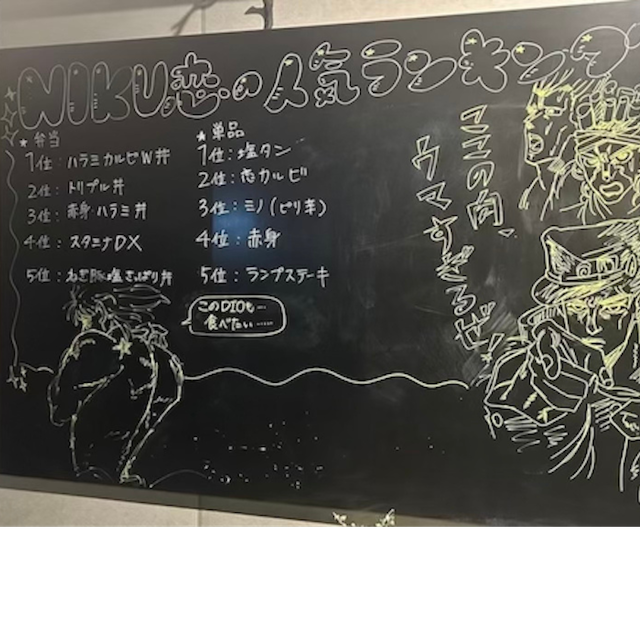 NIKU恋の人気ランキング
★弁当
1位:ハラミカルビW丼
2位:トリプル丼
3位:赤身・ハラミ丼
4位:スタミナDX
5位:ねぎ豚塩さっぱり丼
★単品
1位:塩タン
2位:恋カルビ
3位:ミノ(ピリ辛)
4位:赤身
5位:ランプステーキ
このDIOも…
食べたい……
ここの肉、
ウマすぎるぜ!